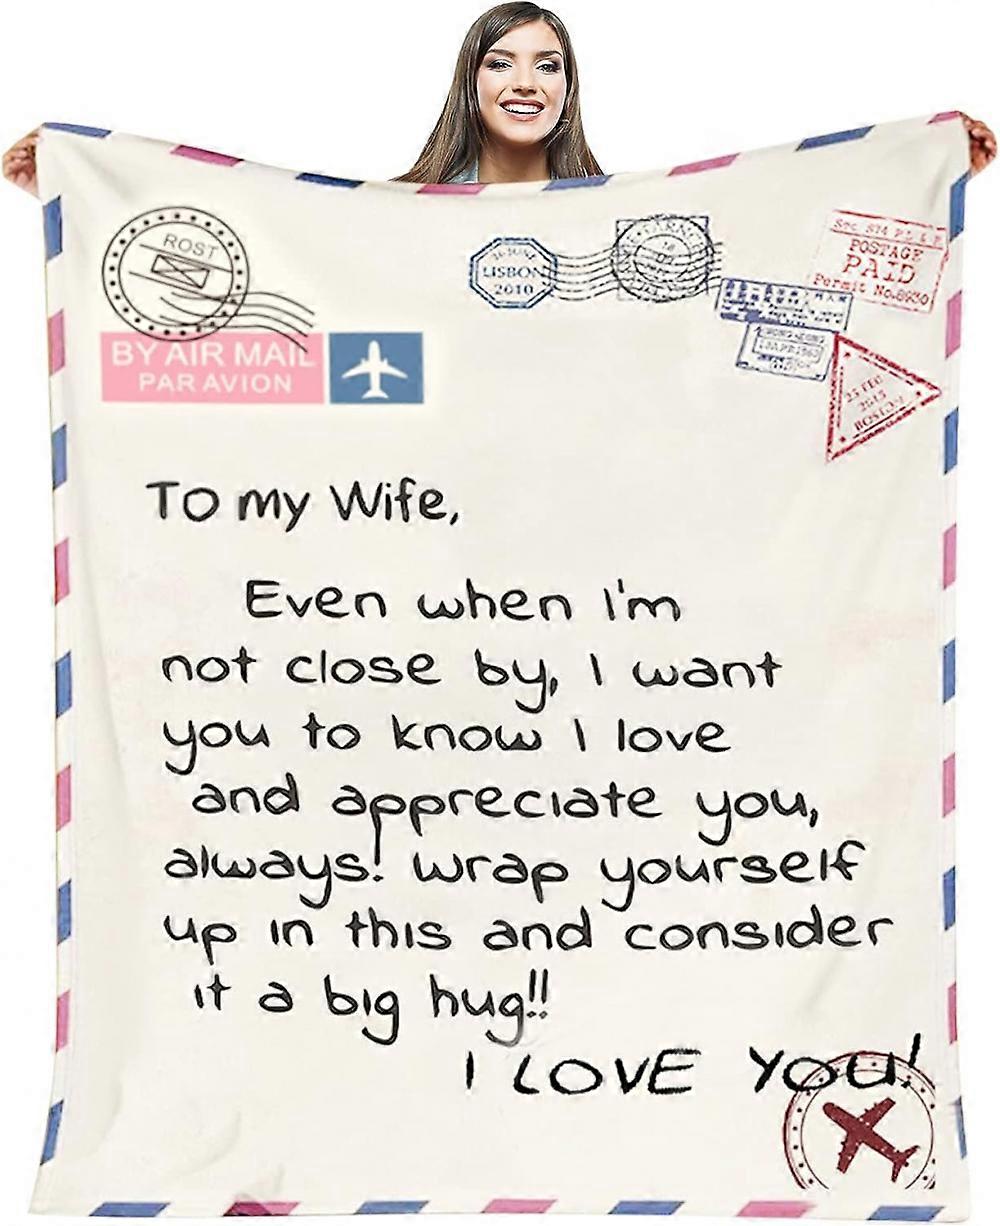 ROST
BY AIR MAIL
PAR AVION
LISBON
2010
POSTAGE
PAID
Permit No.8930
BOSTON
To my Wife,
Even when I'm
not close by, I want
you to know I love
and appreciate you,
always! wrap yourself
up in this and consider
it a big hug!!
I LOVE YOU!